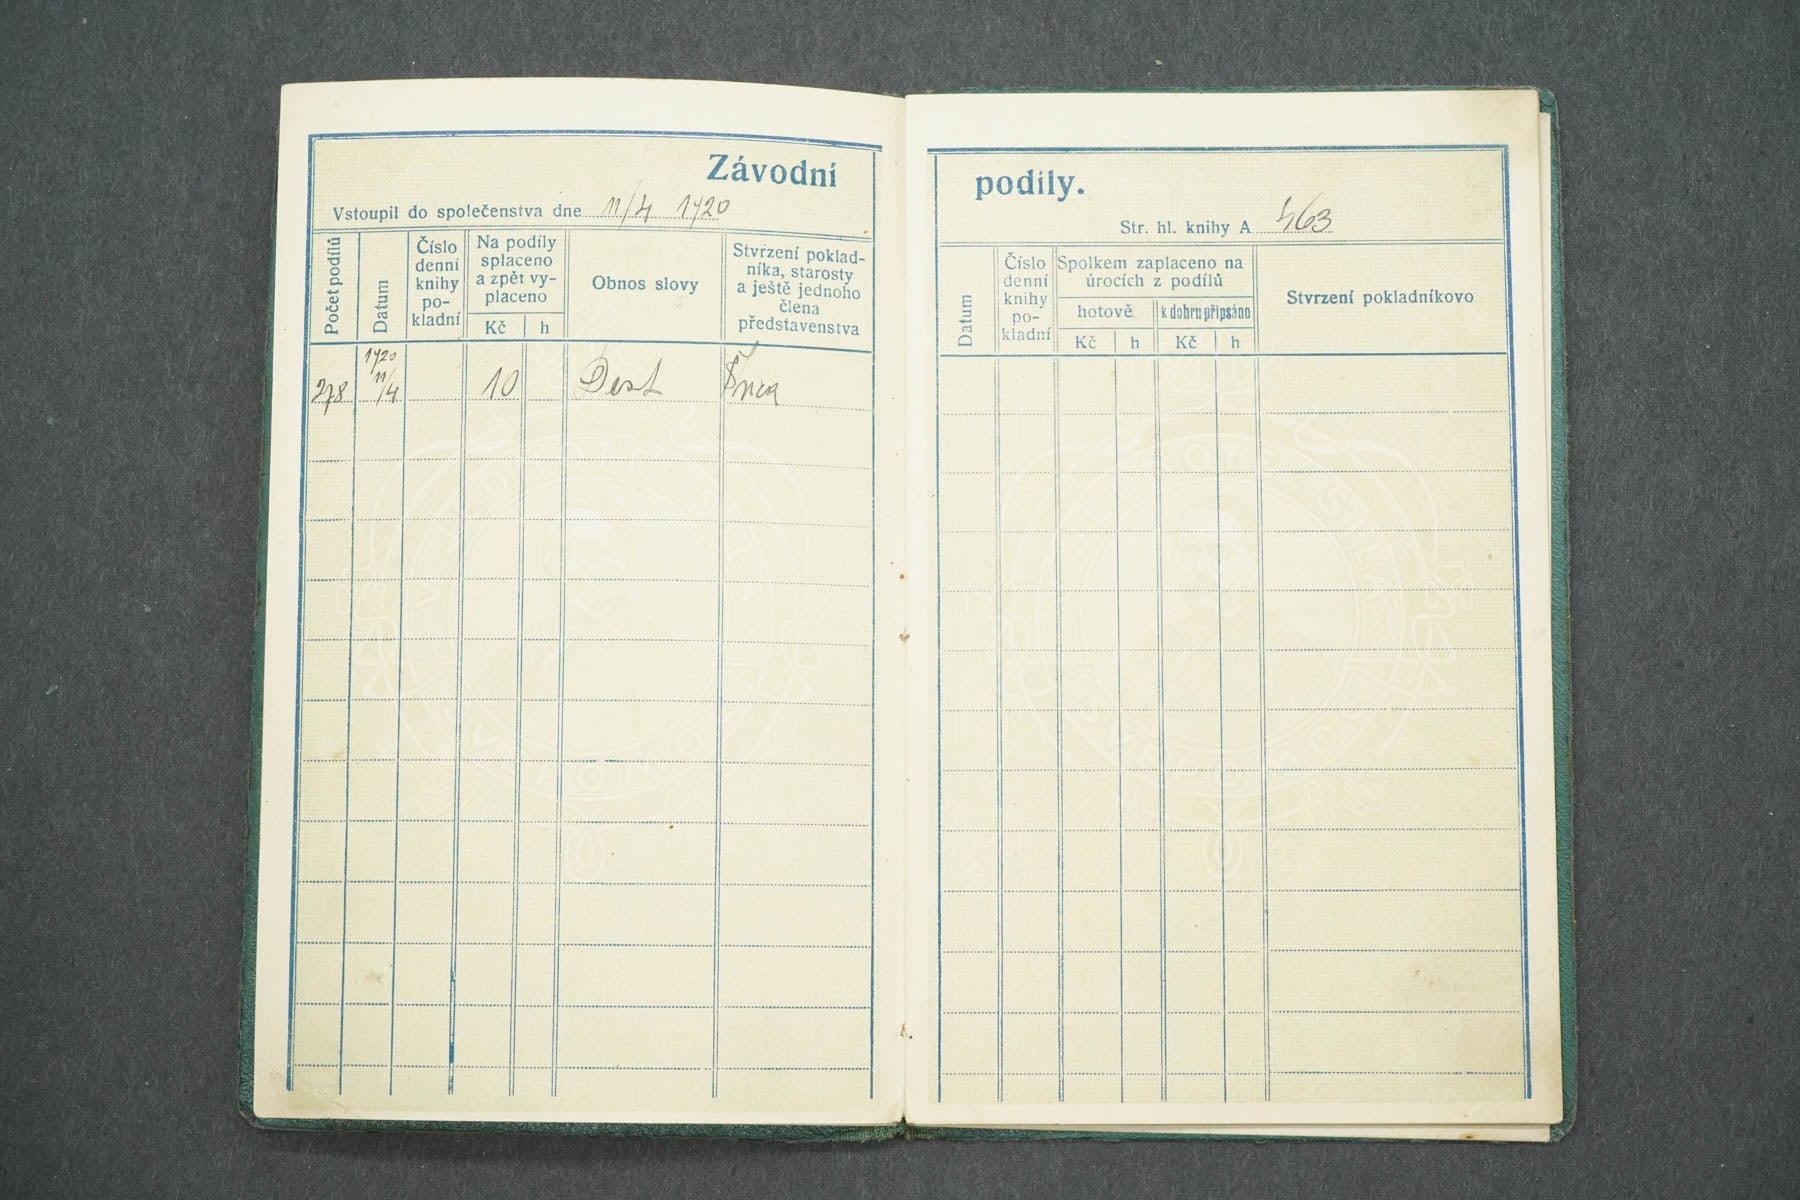 Závodní
Vstoupil do společenstva dne 11/4 1920
Počet podílů
Datum
Číslo
denní
knihy
po-
kladní
Na podíly
splaceno
a zpět vy-
placeno
Kč h
Obnos slovy
Stvrzení poklad-
níka, starosty
a ještě jednoho
člena
představenstva
1920
278 11/4 10 Deset
podíly.
Str. hl. knihy A 463
Datum
Číslo
denní
knihy
po-
kladní
Spolkem zaplaceno na
úrocích z podílů
hotově k dobru připsáno
Kč h Kč h
Stvrzení pokladníkovo
V JEDNOTĚ SÍLA
SVÉPOMOC
V JEDNOTĚ SÍLA
SVÉPOMOC